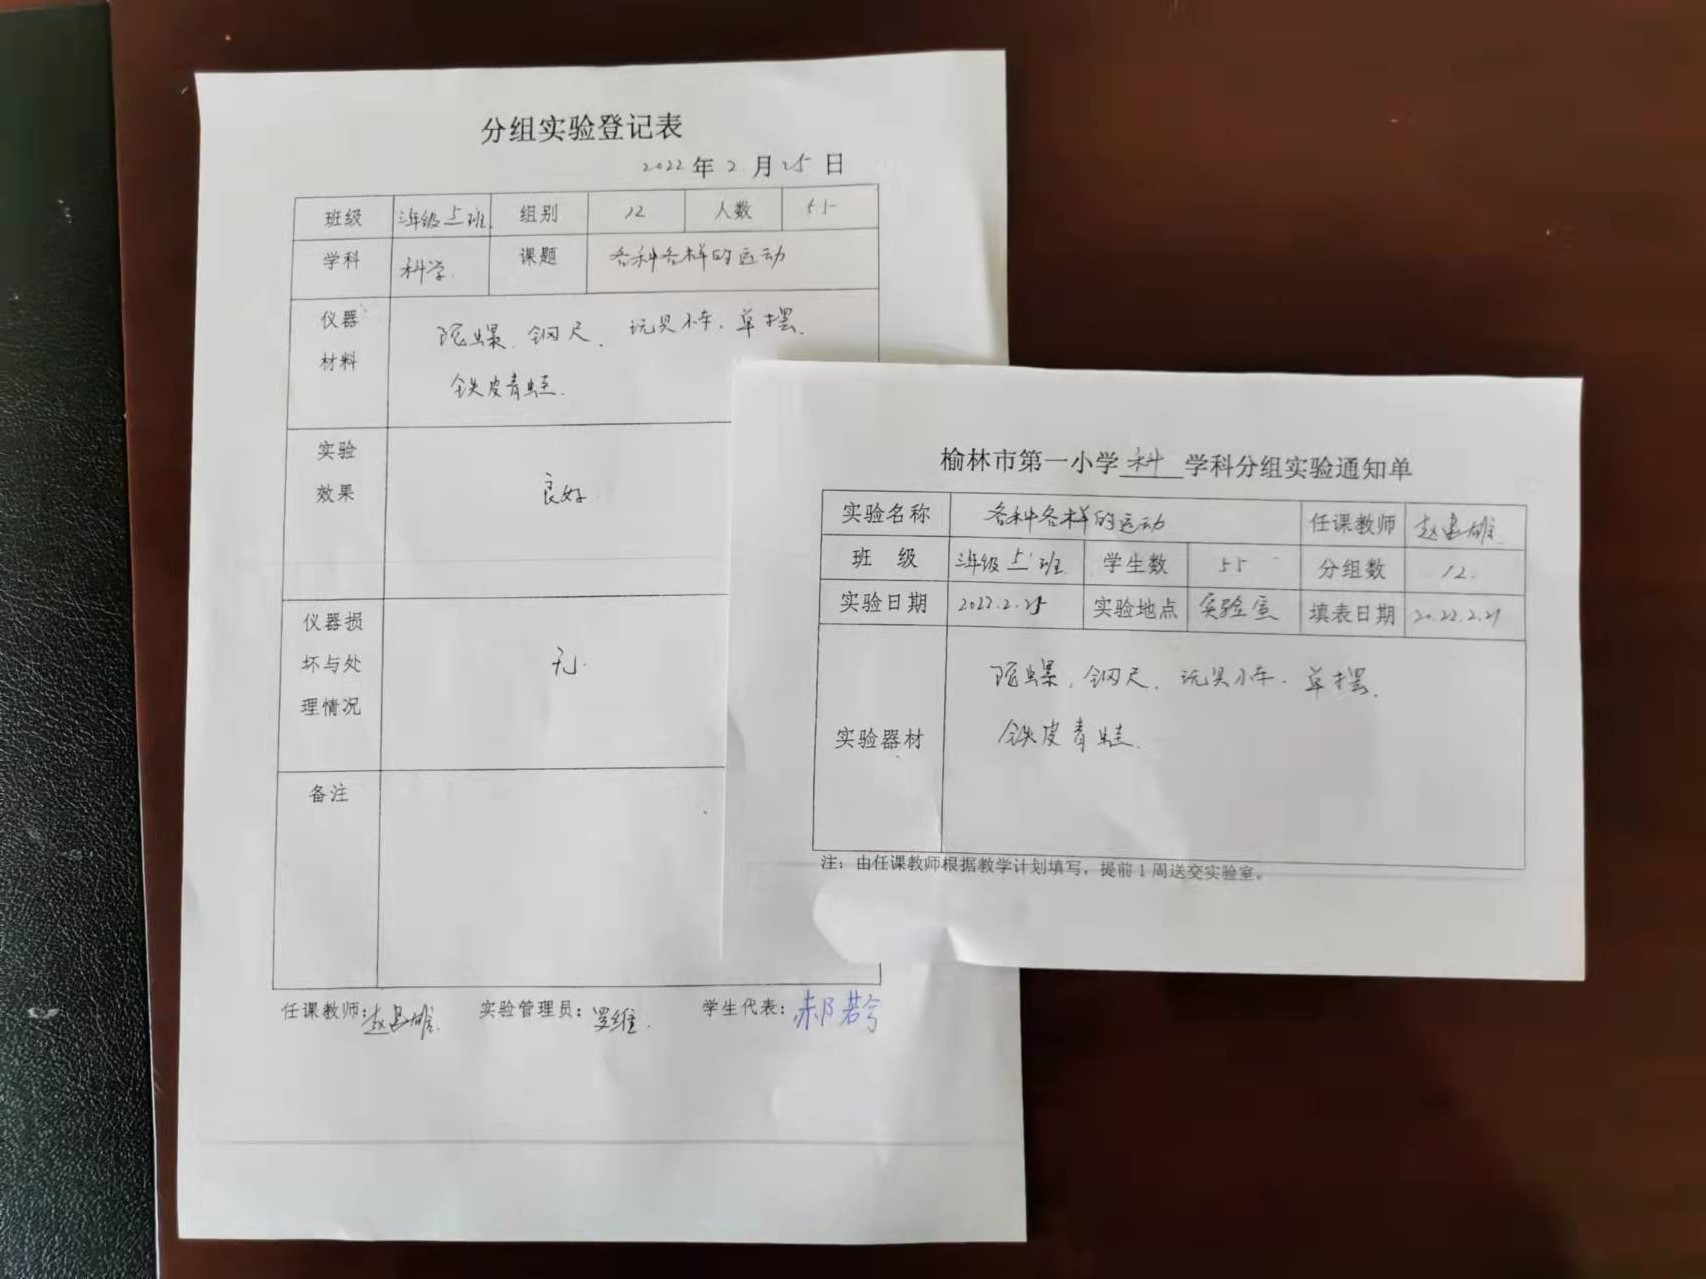 分组实验登记表
2022年2月25日
班级 三年级5班 组别 12 人数 55
学科 科学 课题 各种各样的运动
仪器材料 陀螺、钢尺、玩具小车、单摆、
铁皮青蛙.
实验效果 良好
仪器损坏与处理情况 无.
备注
任课教师: 实验管理员: 罗维. 学生代表: 郝若兮
榆林市第一小学 科 学科分组实验通知单
实验名称 各种各样的运动 任课教师
班 级 三年级5班 学生数 55 分组数 12.
实验日期 2022.2.25 实验地点 实验室 填表日期 2022.2.21
实验器材 陀螺、钢尺、玩具小车、单摆、
铁皮青蛙、
注：由任课教师根据教学计划填写，提前1周送交实验室。